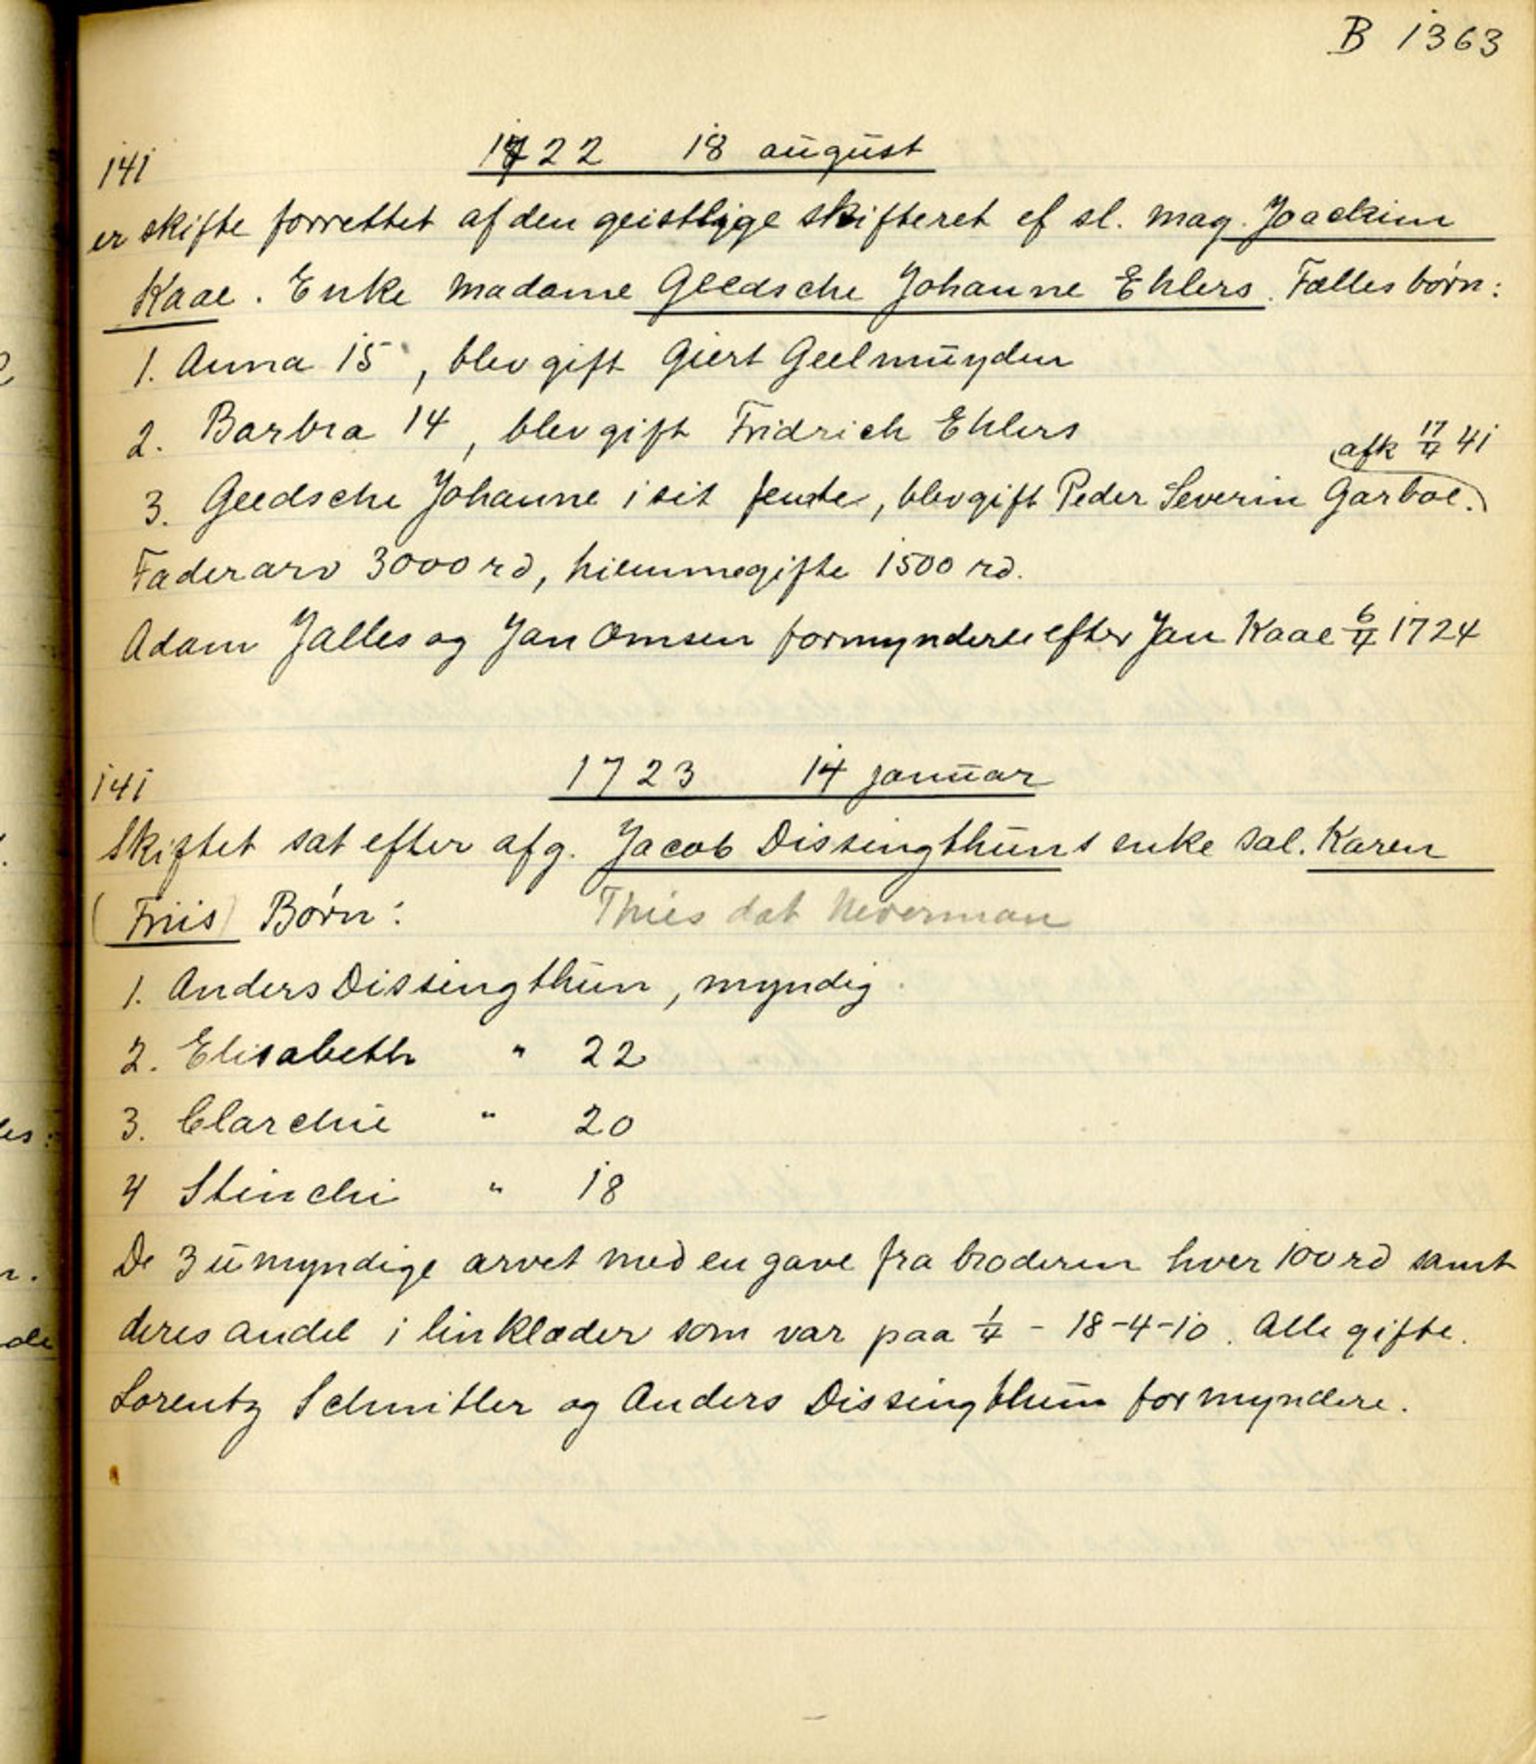 B 1363
141 1722 18 august
er skifte forrettet af den geistlige skifteret ef sl. mag. Joackim
Kaae. Enke Madame Geedsche Johanne Ehlers. Fælles børn:
1. Anna 15, blev gift Giert Geelmuyden
2. Barbra 14, blev gift Fridrich Ehlers
afk 17/4 41
3. Geedsche Johanne i sit femte, blev gift Peder Severin Garboe.
Faderarv 3000 rd, hiemmegifte 1500 rd.
Adam Jalles og Jan Omsen formyndere efter Jan Kaae 6/4 1724
141 1723 14 januar
Skiftet sat efter afg. Jacob Dissingthuns enke sal. Karen
(Friis) Børn: Thies dat Neverman
1. Anders Dissingthun, myndig.
2. Elisabeth " 22
3. Clarchie " 20
4 Stinchi " 18
De 3 umyndige arvet med en gave fra broderen hver 100 rd samt
deres andel i linklæder som var paa 1/4 - 18-4-10. Alle gifte.
Lorentz Schmitler og Anders Dissingthun formyndere.